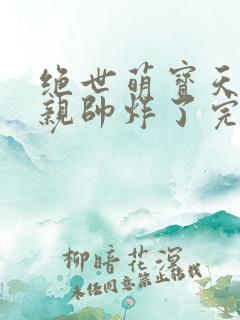 绝世萌寶天
親帥炸了完
柳暗花溟
未经同意禁止转载